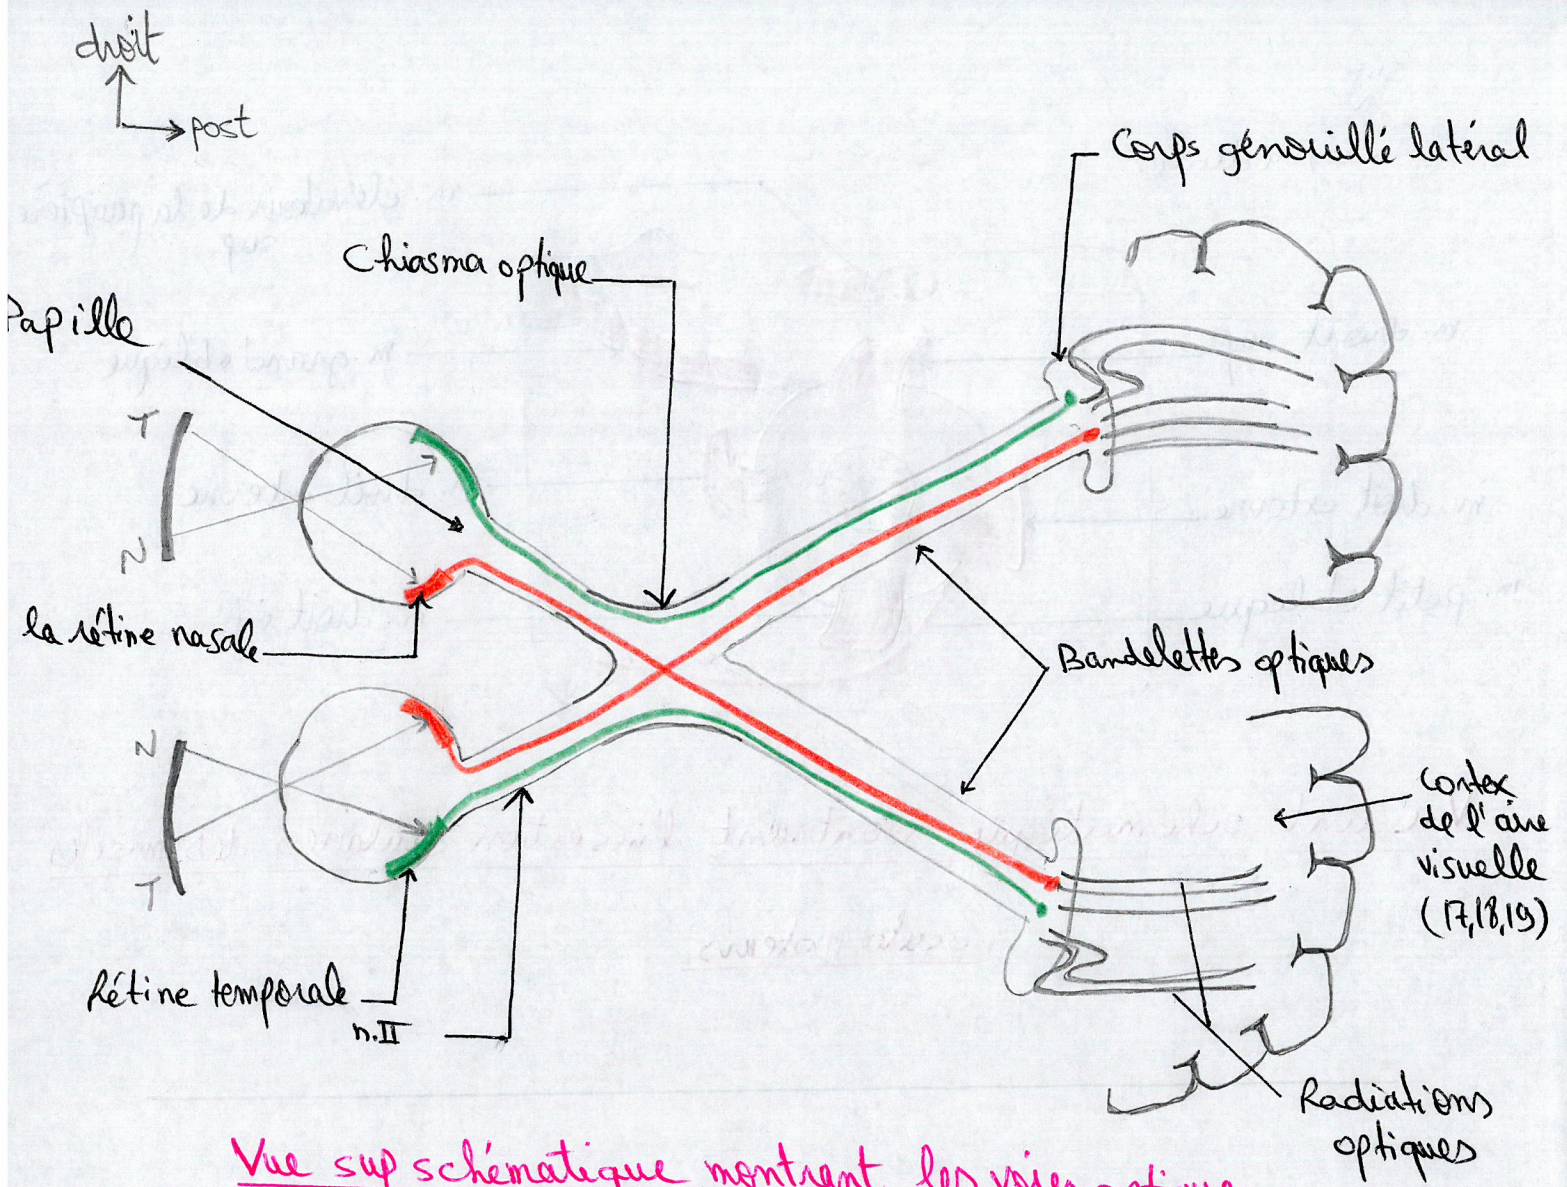 droit
post
Corps génouillé latéral
Chiasma optique
Papille
T
N
la rétine nasale
Bandelettes optiques
N
T
Cortex
de l'aire
visuelle
(17,18,19)
Rétine temporale
n.II
Radiations
optiques
Vue sup schématique montrant les voies optique